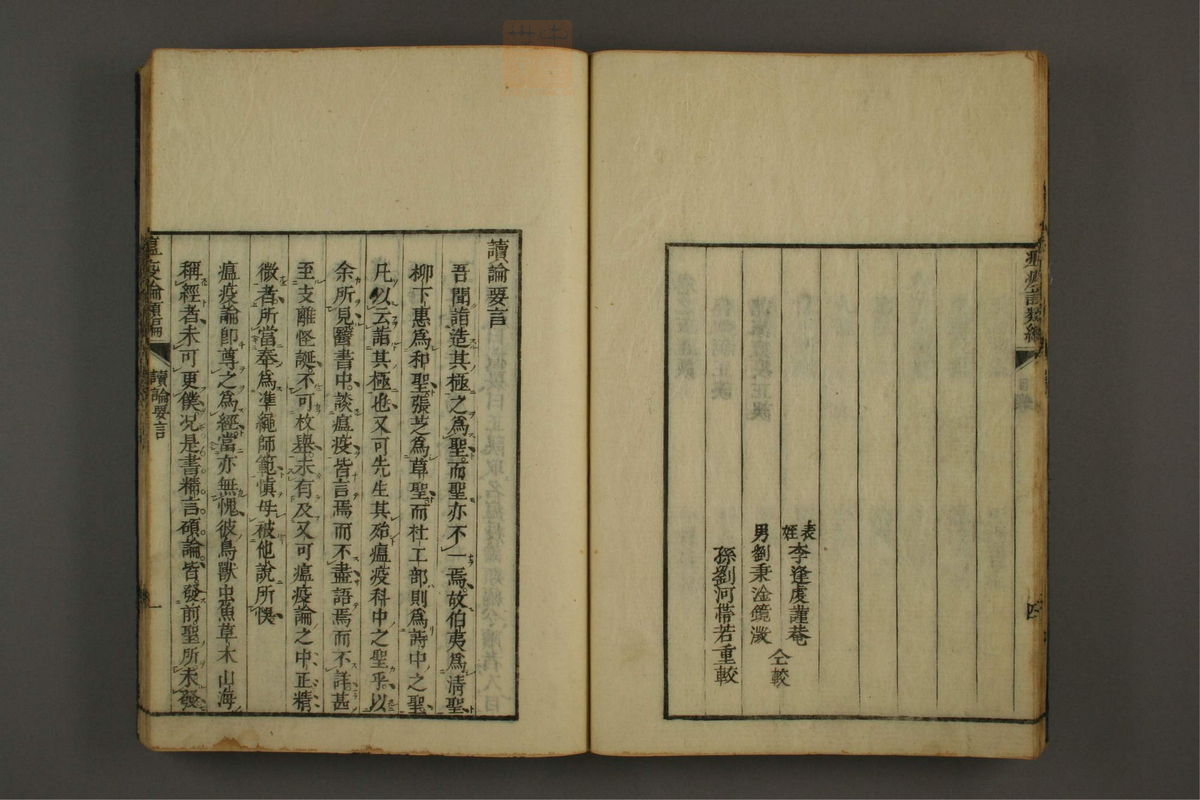 瘟疫論類編
目錄
四
表姪李逢虔謹菴
男劉秉淦鏡濙
仝較
孫劉河帶若重較
讀論要言
吾聞詣造其極之爲聖而聖亦不一焉故伯夷爲清聖
柳下惠爲和聖張芝爲草聖而杜工部則爲詩中之聖
凡以云詣其極也又可先生其殆瘟疫科中之聖乎以
余所見醫書中談瘟疫皆言焉而不盡語焉而不詳甚
至支離怪誕不可枚舉未有及又可瘟疫論之中正精
微者所當奉爲準繩師範慎毋被他說所惧
瘟疫論即尊之爲經當亦無愧彼鳥獸虫魚草木山海
稱經者未可更僕况是書精言碩論皆發前聖所未發
瘟疫論類編
讀論要言
一